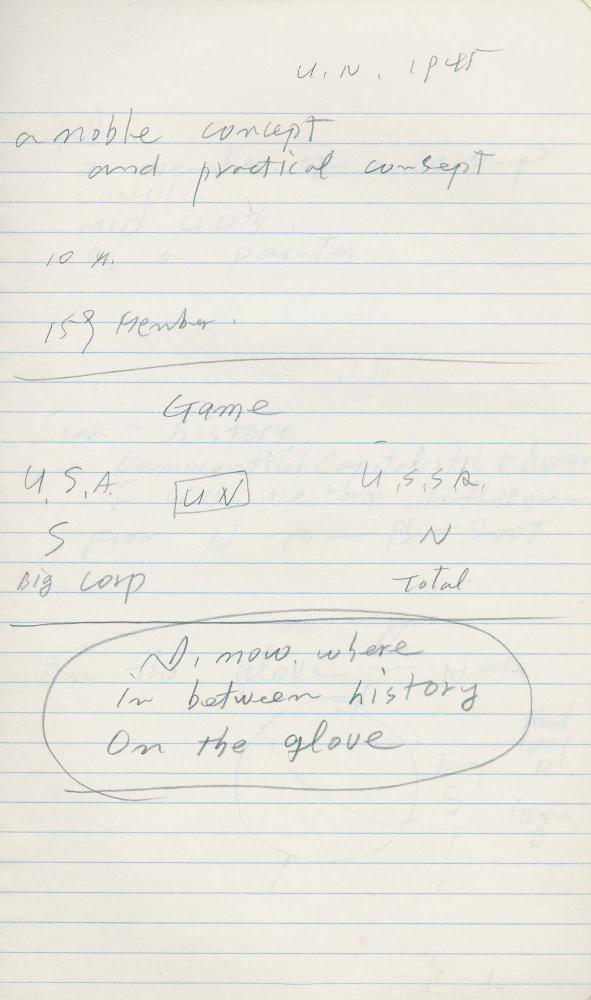 U.N. 1945
a noble concept
and practical consept
10 n.
159 Member.
Game
U.S.A. UN U.S.S.R.
S N
Big Corp Total
N, now where
in between history
On the glove